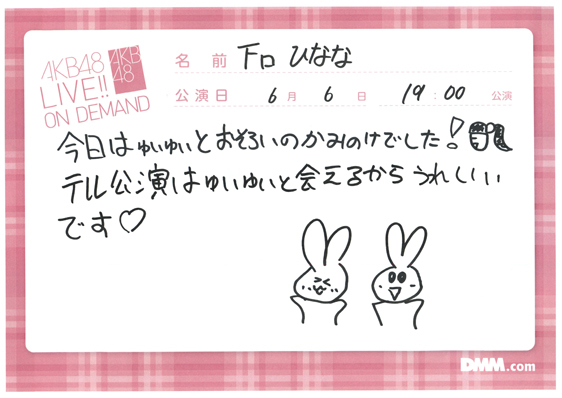 AKB48
LIVE!!
ON DEMAND
AKB
48
名前 下口 ひなな
公演日 6月 6日 19:00 公演
今日はゆいゆいとおそろいのかみのけでした!
テル公演はゆいゆいと会えるからうれしいい
です♡
DMM.com